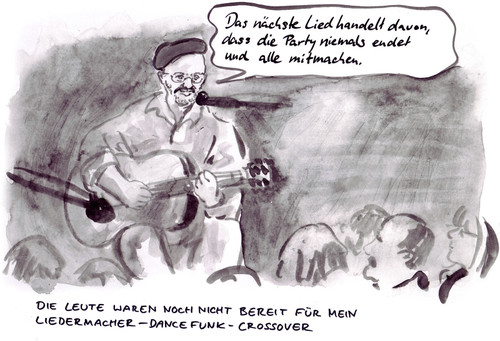 Das nächste Lied handelt davon,
dass die Party niemals endet
und alle mitmachen.
DIE LEUTE WAREN NOCH NICHT BEREIT FÜR MEIN
LIEDERMACHER-DANCEFUNK-CROSSOVER